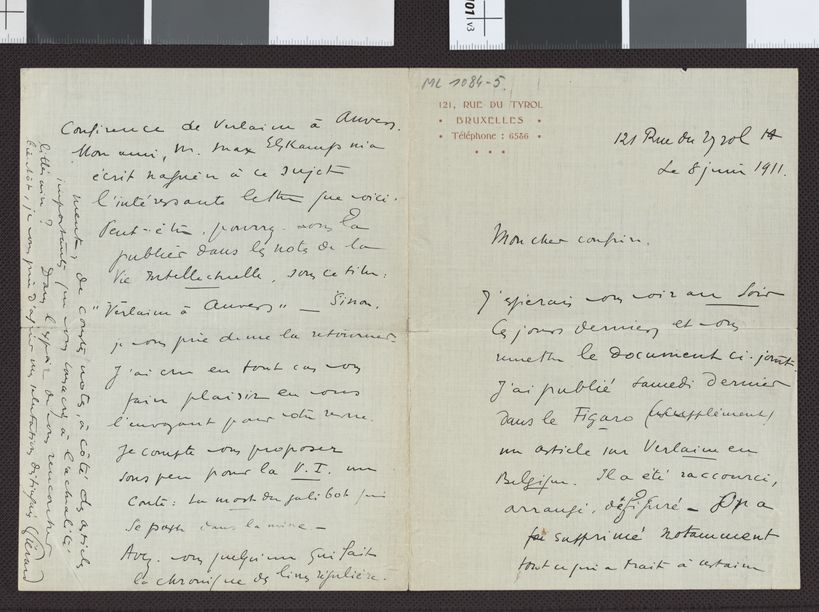 ML 1084-5.
121, RUE DU TYROL
• BRUXELLES •
• Téléphone : 6556 •
121 Rue du Tyrol
Le 8 juin 1911.
Mon cher confrère.
J'espérais vous voir au Soir
ces jours derniers et vous
remettre le document ci-joint.
J'ai publié samedi dernier
dans le Figaro (supplément)
un article sur Verlaine en
Belgique. Il a été raccourci,
arrangé, défiguré — On a
supprimé notamment
tout ce qui a trait à certaine
Conférence de Verlaine à Anvers.
Mon ami, Mr. Max Elskamp m'a
écrit naguère à ce sujet
l'intéressante lettre que voici.
Peut-être, pourrez-vous la
publier dans les notes de la
Vie Intellectuelle, sous ce titre :
"Verlaine à Anvers" — Sinon,
je vous prie de me la retourner.
J'ai cru en tout cas vous
faire plaisir en vous
l'envoyant pour votre revue.
Je compte vous proposer
sous peu pour la V.I. un
conte : La mort du galibot qui
se passe dans la mine —
Avez-vous quelqu'un qui fait
la chronique des livres régulière-
ment, de courtes notes, à côté des articles
importants que vous consacrez à l'actualité
littéraire ? Dans l'espoir de vous rencontrer
bientôt, je vous prie d'agréer mes salutations distinguées